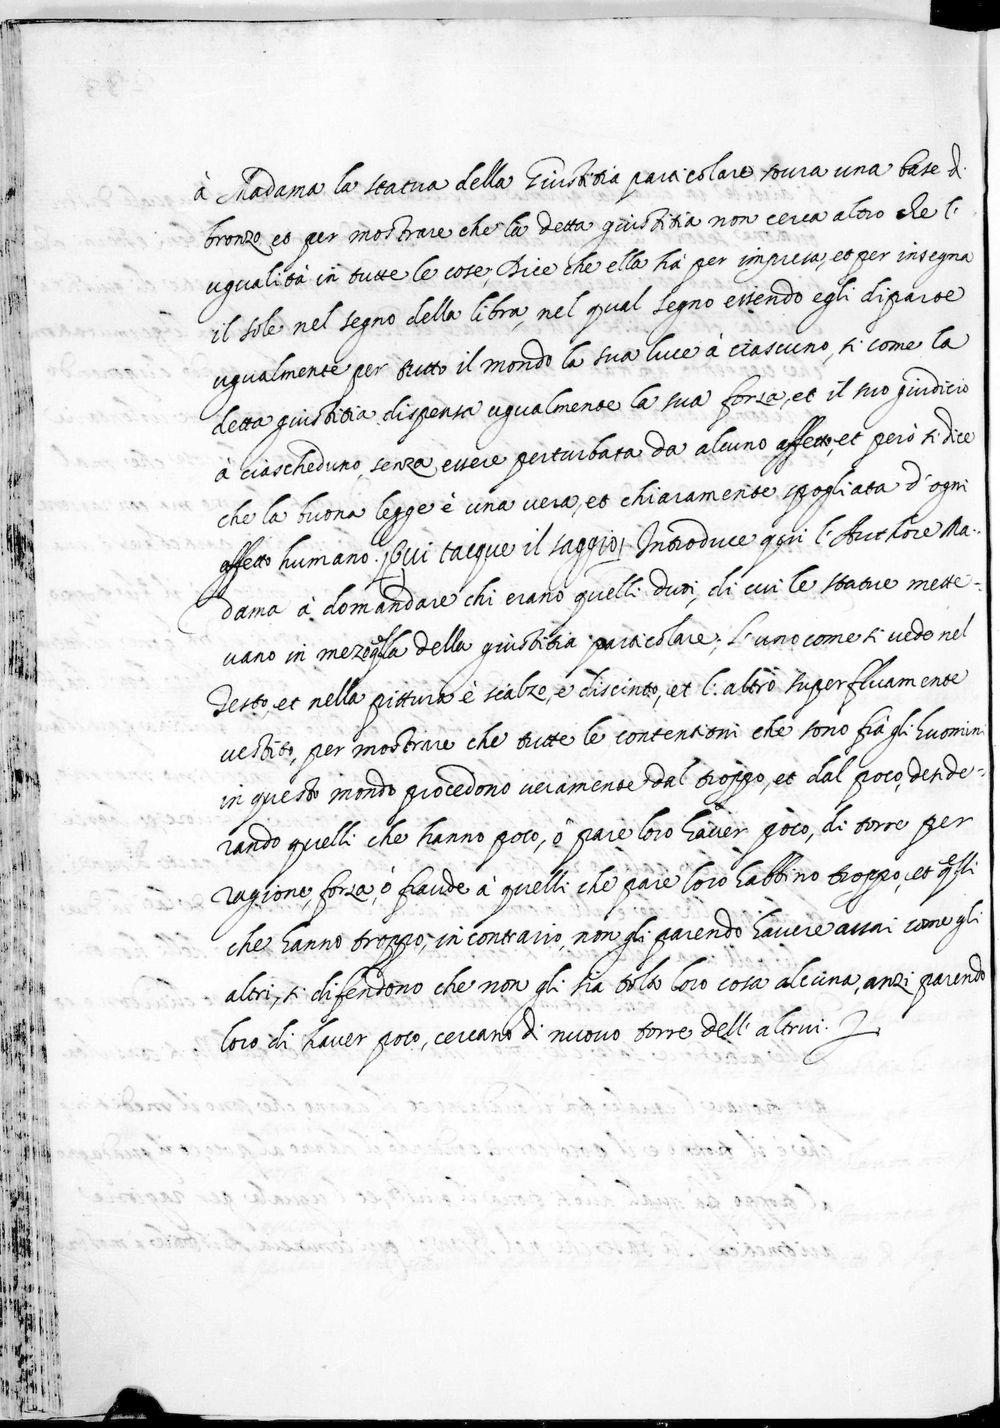 à Madama la statua della Giustitia particolare soura una base di
bronzo, et per mostrare che la detta giustitia non cerca altro che l'
ugualità in tutte le cose, Dice che ella hà per impresa, et per insegna
il sole nel segno della libra, nel qual segno essendo egli diparte
ugualmente per tutto il mondo la sua luce à ciascuno, si come la
detta giustitia dispensa ugualmente la sua forza, et il suo giudicio
à ciascheduno, senza essere perturbata da alcuno affetto, et però si dice
che la buona legge è una vera, et chiaramente spogliata d'ogni
affetto humano. (Qui tacque il saggio) Introduce qui l'Authore Ma-
dama à domandare chi erano quelli duoi, di cui le statue mette-
vano in mezo qlla della giustitia particolare; l'uno come si vede nel
Testo, et nella pittura è scalzo, e discinto, et l'altro superfluamente
vestito, per mostrare che tutte le contentioni che sono frà gli huomini
in questo mondo procedono veramente dal troppo, et dal poco, deside-
rando quelli che hanno poco, ò pare loro haver poco, di torre per
ragione, forza, ò fraude à quelli che pare loro habbino troppo, et qlli
che hanno troppo, in contrario, non gli parendo havere assai come gli
altri, si difendono che non gli sia tolta loro cosa alcuna, anzi parendo
loro di haver poco, cercano di nuovo torre dell'altrui.